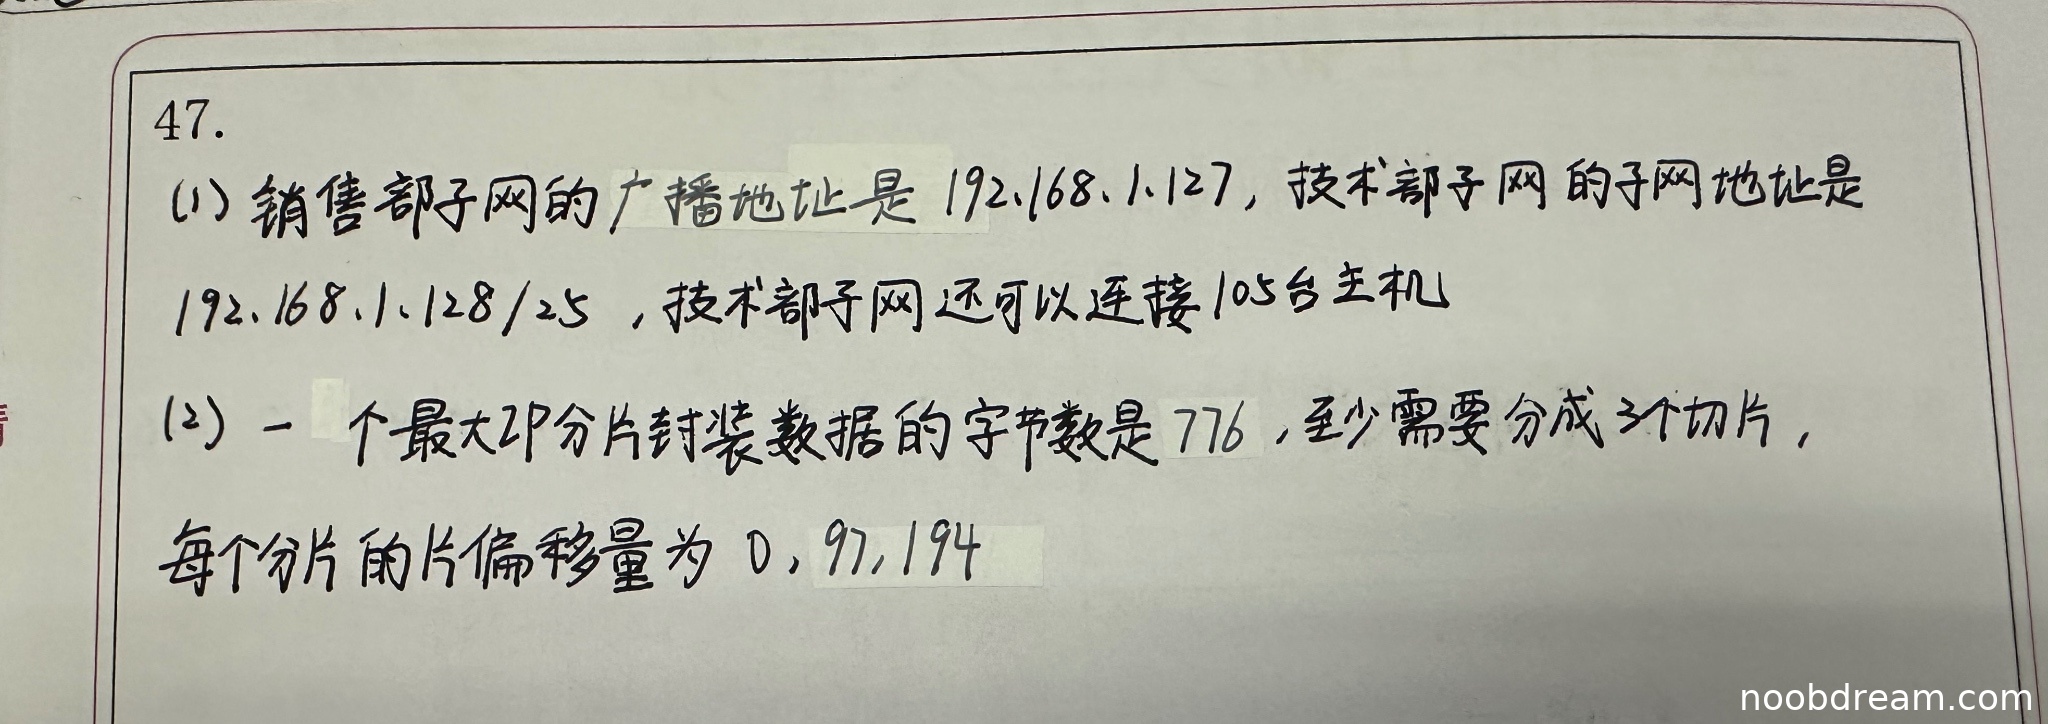 47.
(1) 销售部子网的广播地址是 192.168.1.127, 技术部子网的子网地址是
192.168.1.128/25 , 技术部子网还可以连接105台主机
(2) 一个最大IP分片封装数据的字节数是776 , 至少需要分成3个切片,
每个分片的片偏移量为 0, 97, 194
noobdream.com